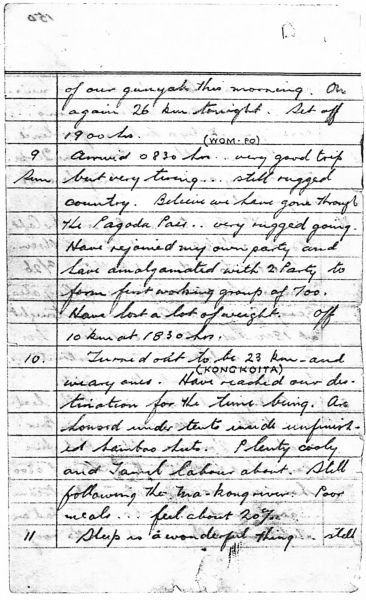 150
of our gunyah this morning. On
again 26 km tonight. Set off
1900 hrs.
(WOM-PO)
9 Arrived 0830 hrs... very good trip
Sun. but very tiring... still rugged
country. Believe we have gone through
the Pagoda Pass.. very rugged going.
Have rejoined my own party and
have amalgamated with 2 Party to
form first working group of 700.
Have lost a lot of weight. Off
10 km at 1830 hrs.
10. Turned out to be 23 km - and
(KONGKOITA)
weary ones. Have reached our des-
tination for the time being. Are
housed under tents inside unfinish-
ed bamboo huts. Plenty cooly
and Tamil labour about. Still
following the river. Poor
meals... feel about 20%.
11 Sleep is a wonderful thing... still